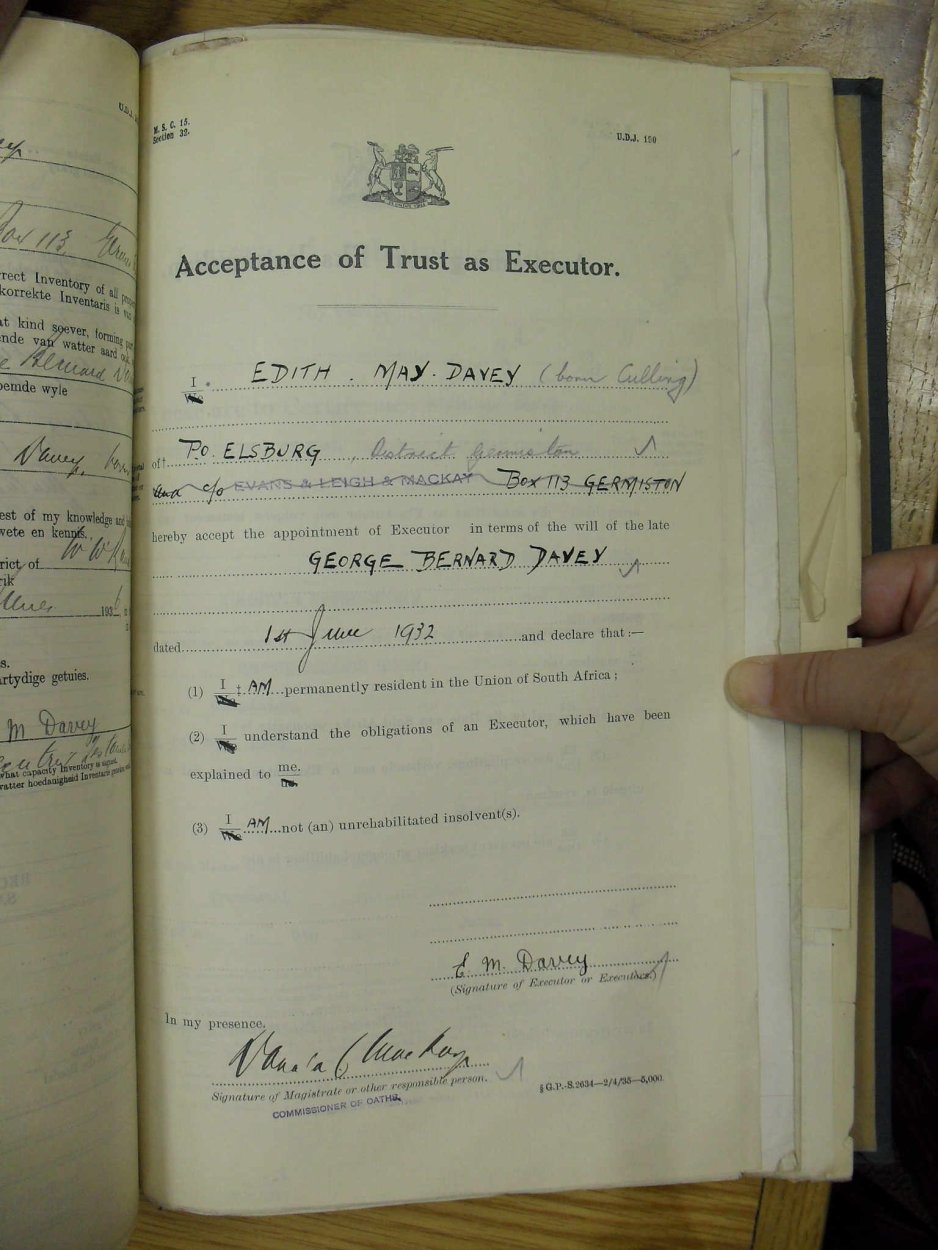 U.D.J.
Box 113.
rrect Inventory of all
korrekte Inventaris is van
at kind soever, forming
ende van watter aard ook
Bernard
oemde wyle
Davey,
est of my knowledge and
wete en kennis.
rict of
rik
193
s.
artydige getuies.
M Davey
what capacity Inventory is signed.
watter hoedanigheid Inventaris
M. S. C. 15.
Section 32.
U.D.J. 190
Acceptance of Trust as Executor.
I EDITH . MAY . DAVEY (born Culling)
We
of† P.O. ELSBURG , District Germiston
and c/o EVANS & LEIGH & MACKAY BOX 113 GERMISTON
hereby accept the appointment of Executor in terms of the will of the late
GEORGE BERNARD DAVEY
dated 1st June 1932 and declare that:—
(1) I ‡ AM permanently resident in the Union of South Africa;
We
(2) I understand the obligations of an Executor, which have been
We
explained to me.
us.
(3) I AM not (an) unrehabilitated insolvent(s).
We
E. M. Davey
(Signature of Executor or Executors.)
In my presence,
Signature of Magistrate or other responsible person.
COMMISSIONER OF OATHS.
§ G.P.-S.2634—2/4/35—5,000.